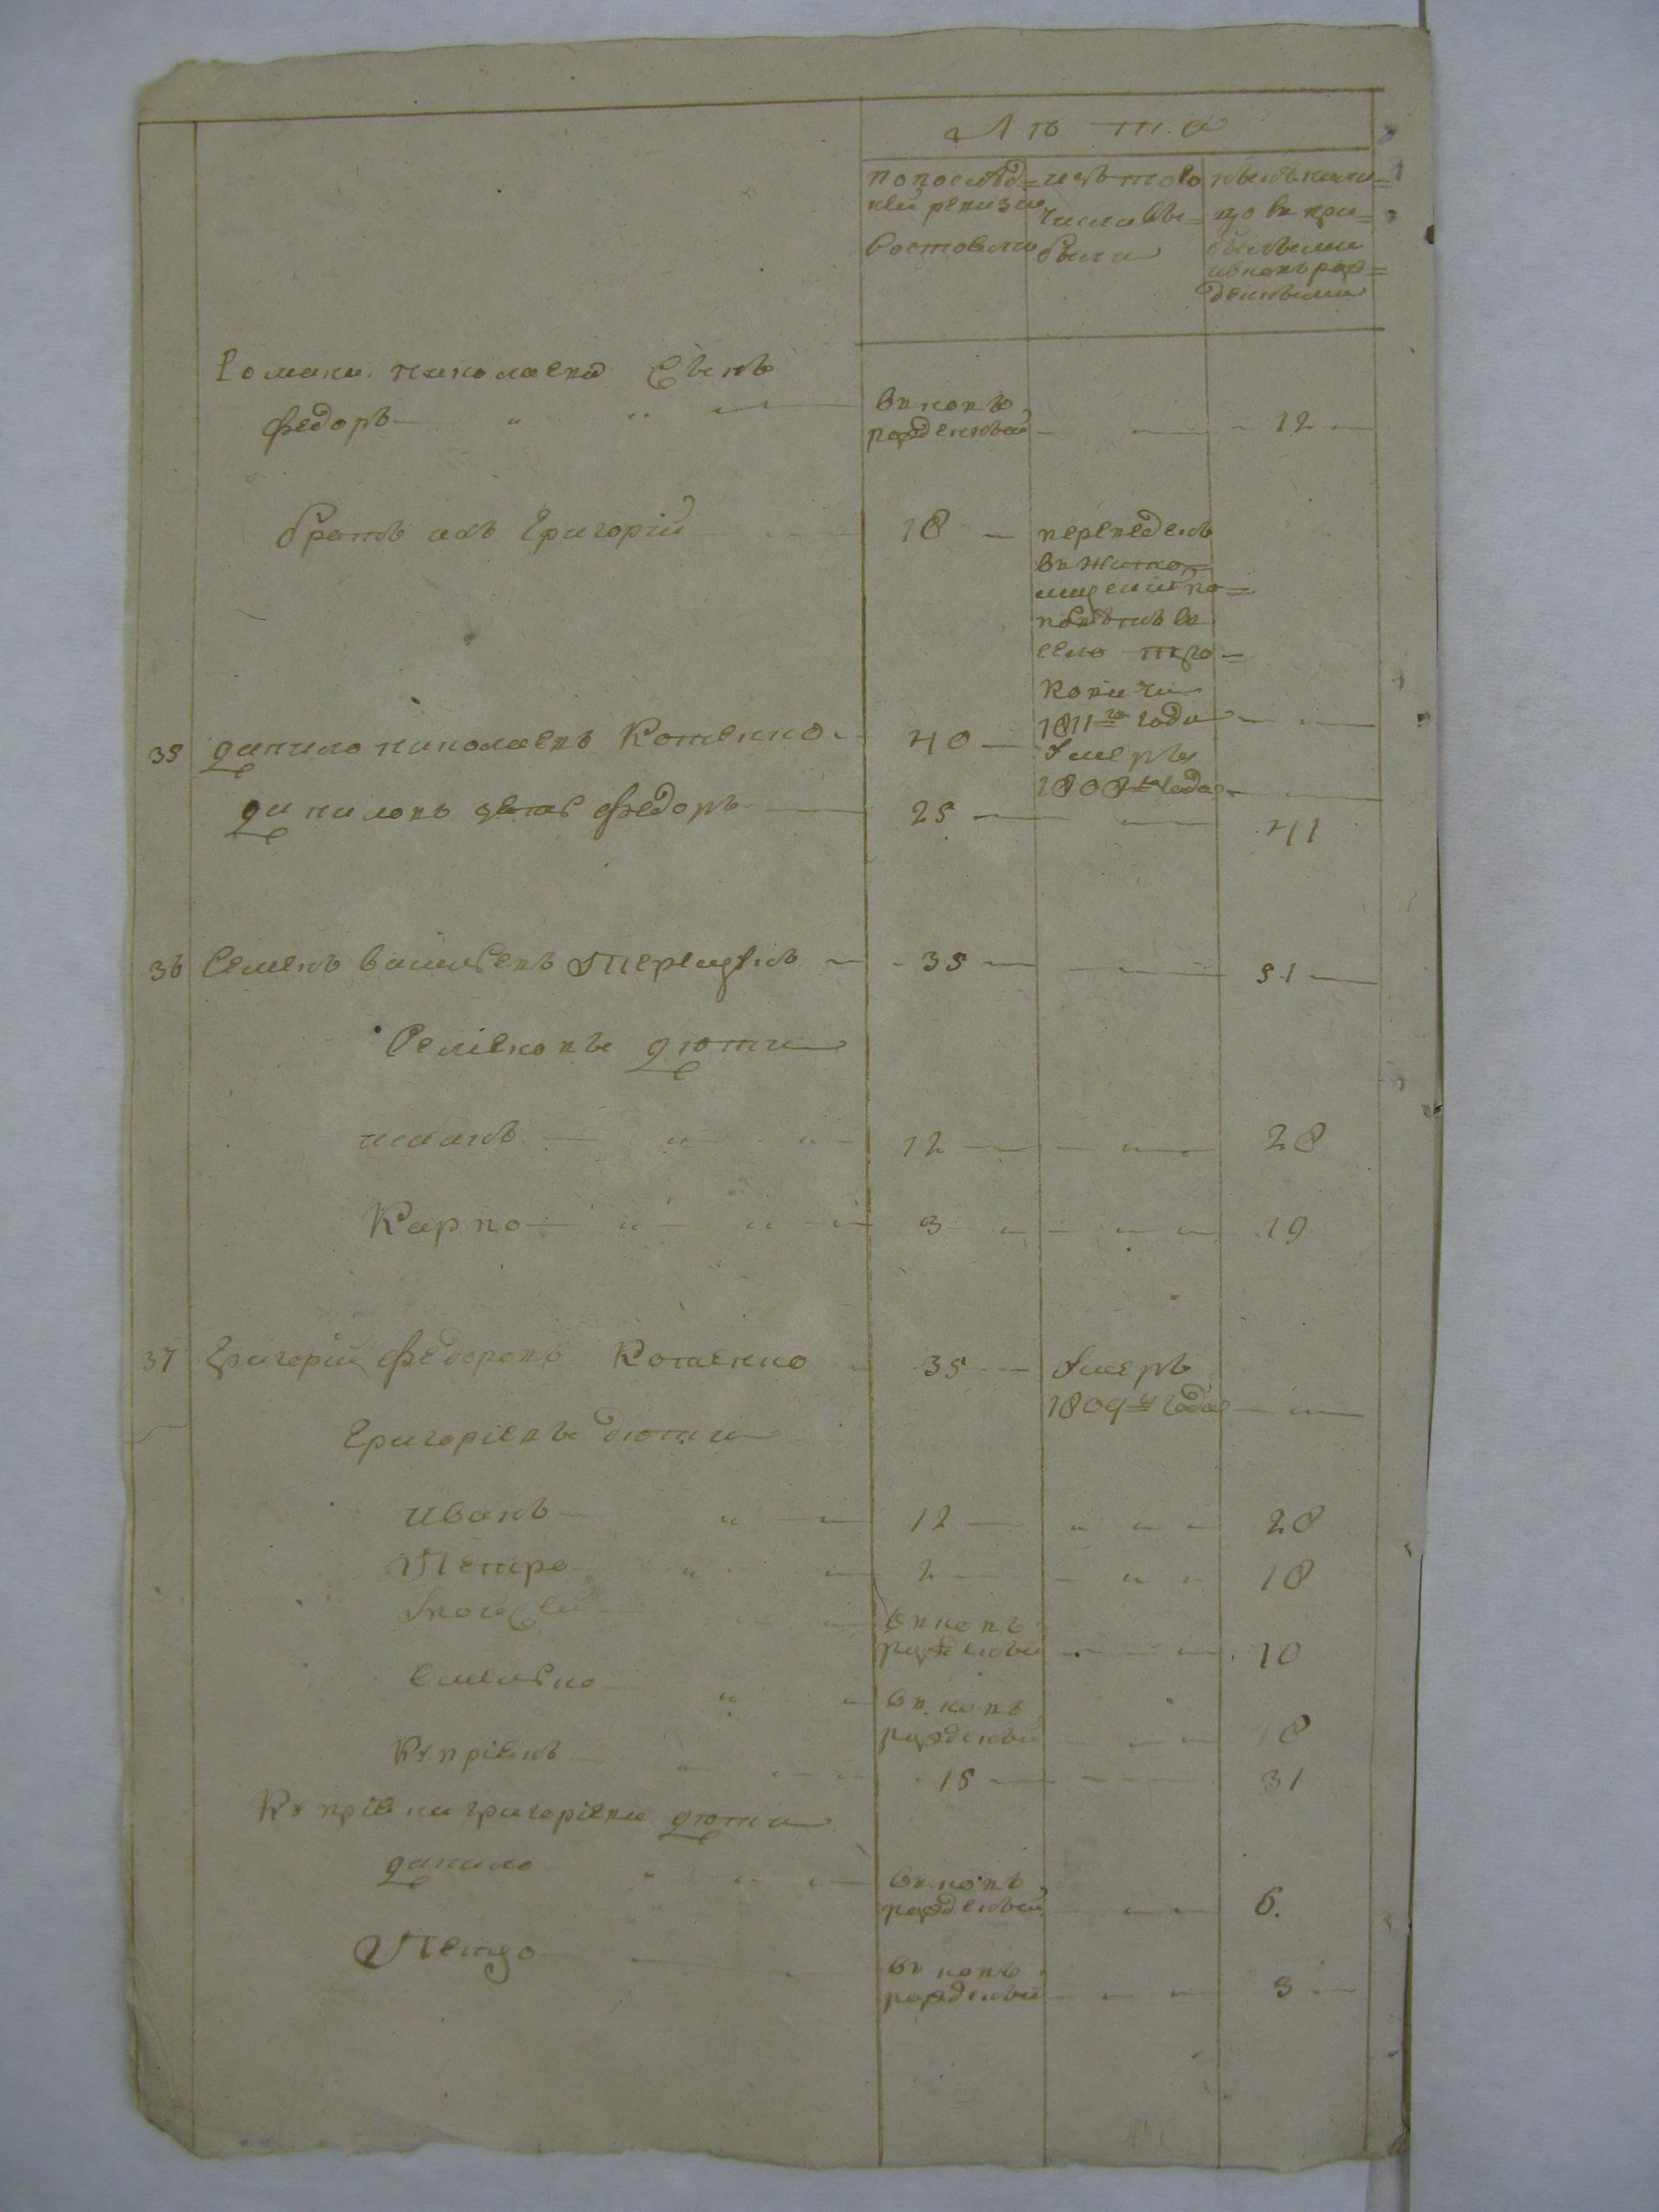 Лѣта
попослѣд= изътого нынѣнали=
ней ревизіи числа вы= цо въ при=
состояли были былыми
ивновь рож=
денными
Романа николаева Сынъ
федоръ вновь рожденный 12
братъ ихъ Григорій 18 переведенъ
въ жито
мирскій по=
вѣтъ въ
село тро=
ковичи
1811го года
35 данило николаевъ Котенко 40 умеръ
1808го года
даниловъ зять федоръ 25 41
36 Семенъ васильевъ 35 51
Семеновы дѣти
иванъ 12 28
Карпо 3 19
37 Григорій федоровъ Котенко 35 умеръ
1809го года
Григоріевы дѣти
иванъ 12 28
Петро 2 18
вновь
рожденный 10
вновь
рожденный 8
Купріянъ 15 31
Купріяна григоріева дѣти
данило вновь
рожденный 6.
Петро вновь
рожденный 3